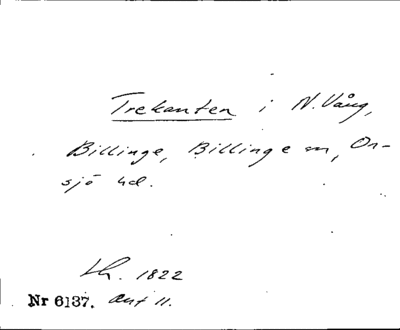 Trekanten i N. Vång,
Billinge, Billinge sn, On-
sjö hd.
Lh. 1822
Nr 6137. akt 11.